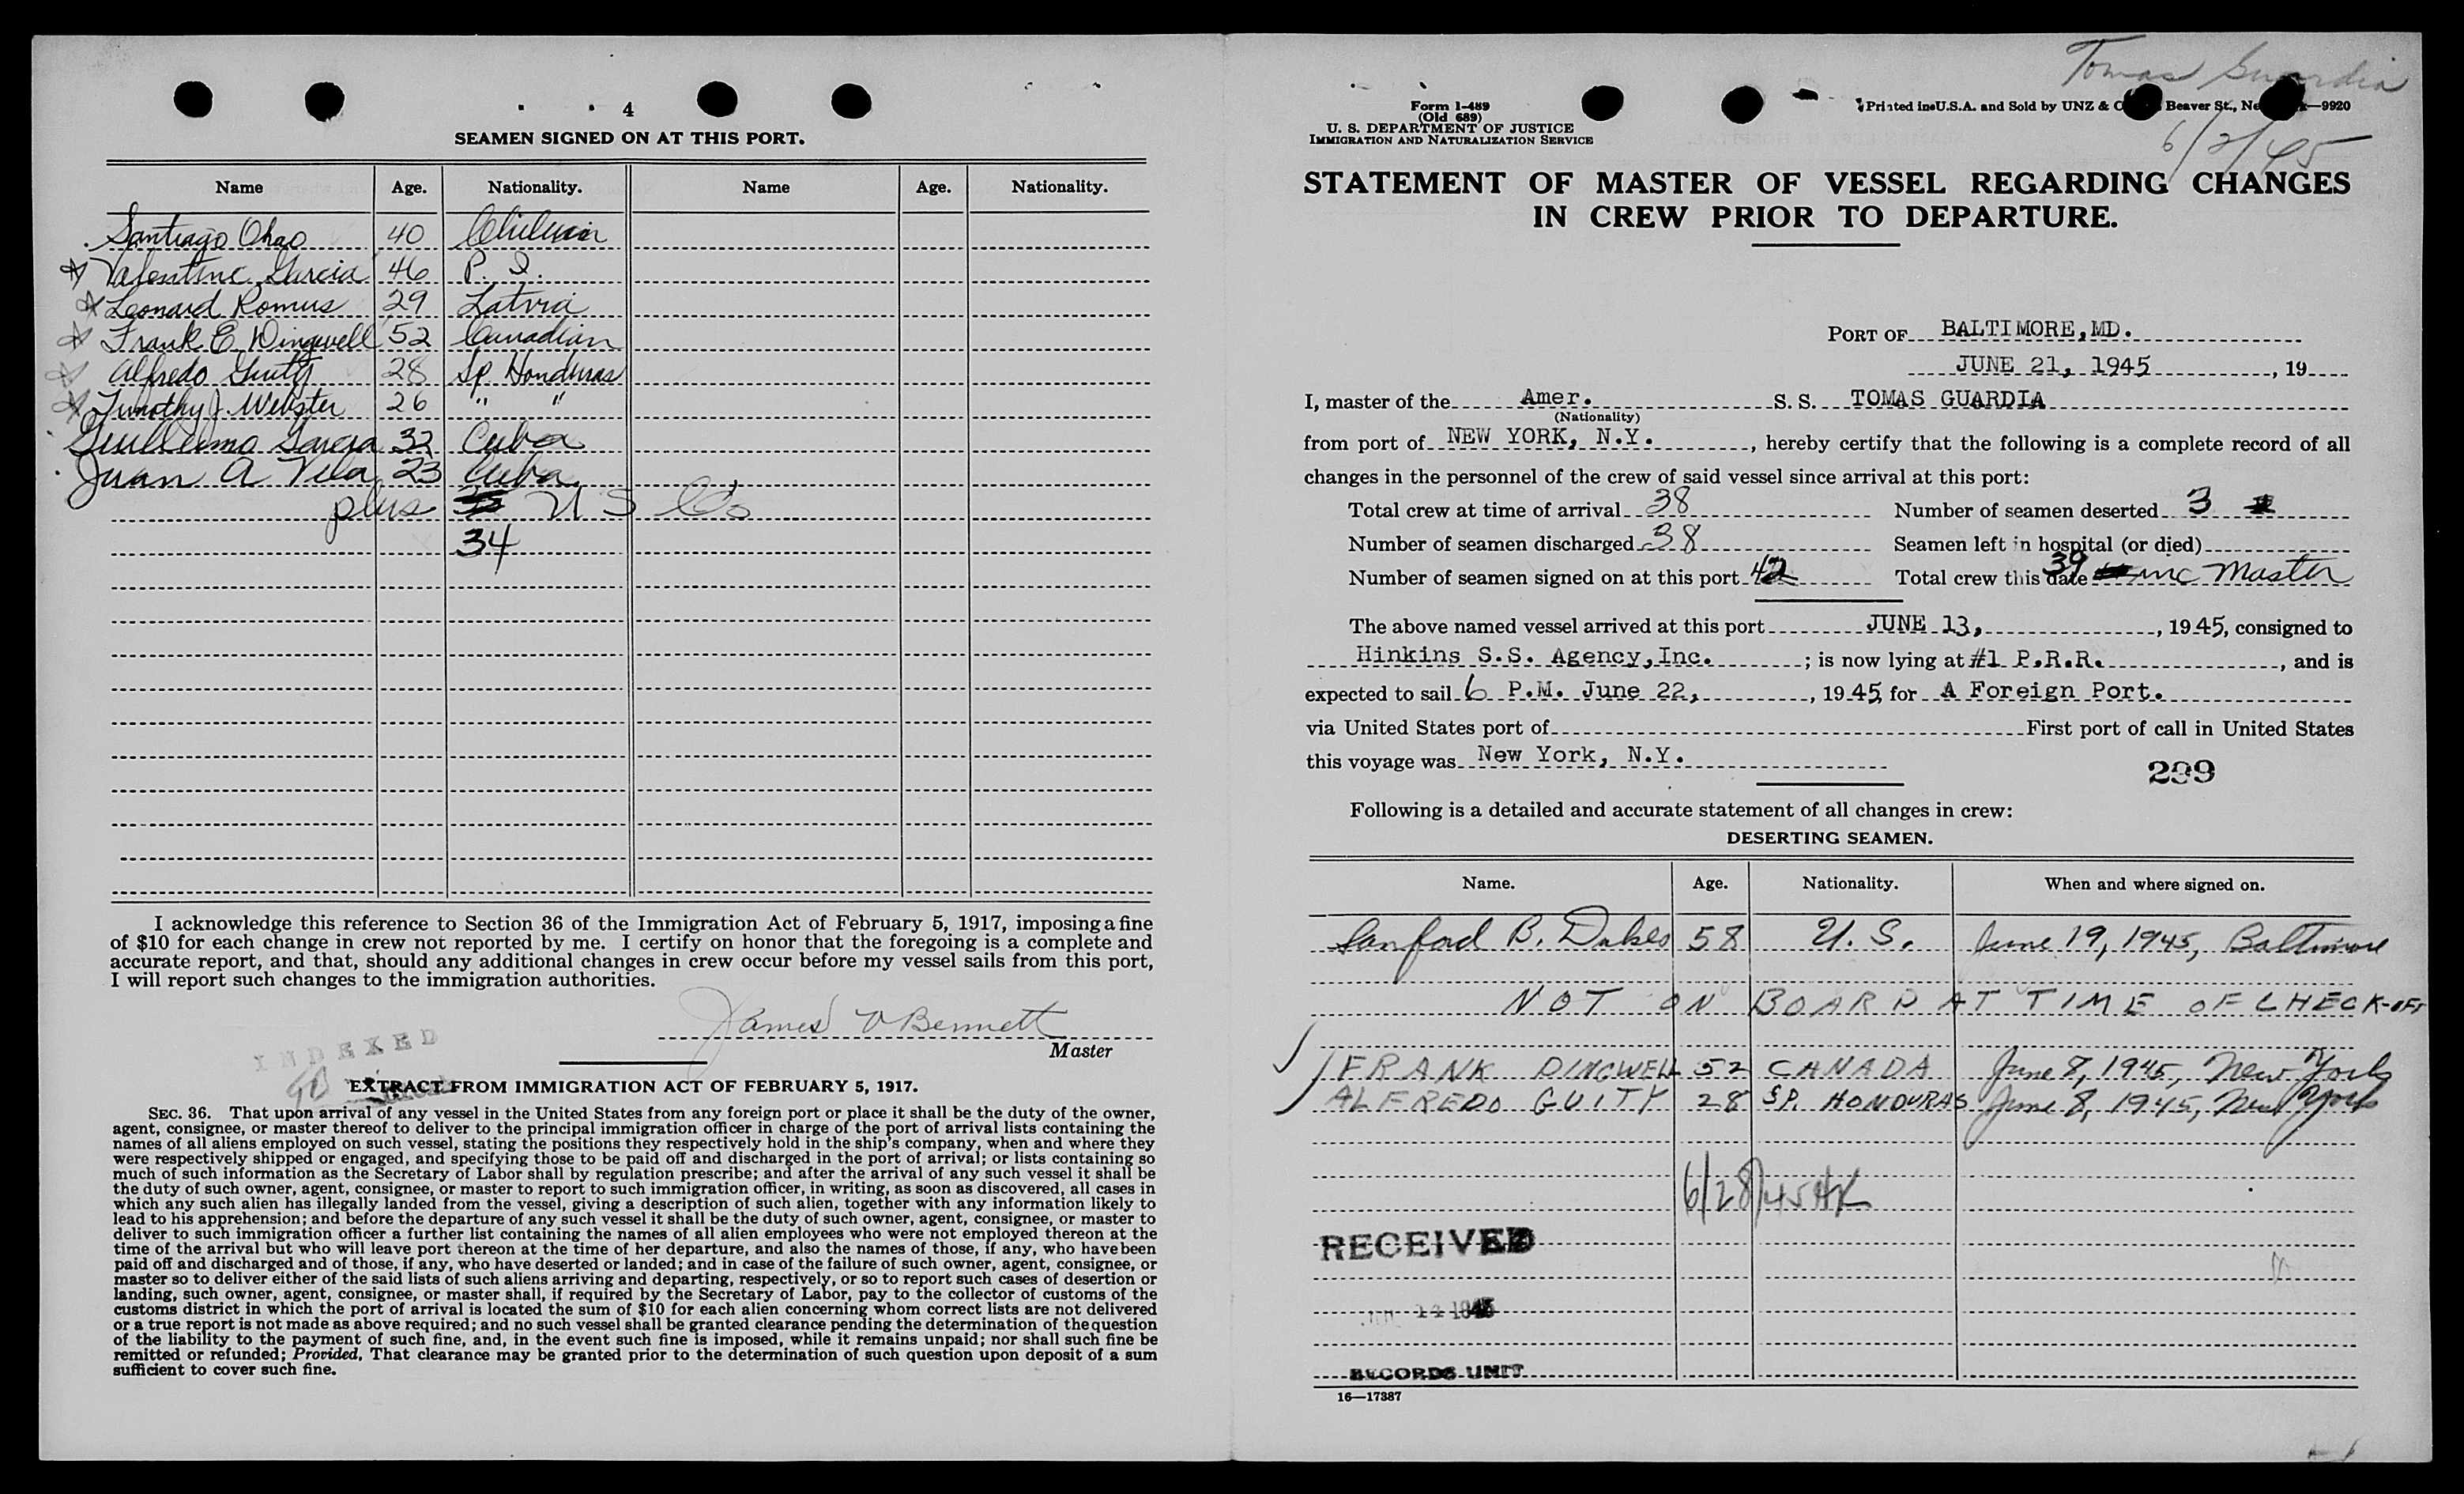 4
SEAMEN SIGNED ON AT THIS PORT.
Name Age. Nationality. Name Age. Nationality.
Santiago Ohao 40 Chilean
Valentine Garcia 46 P. I.
Leonard Romus 29 Latvia
Frank E. Dingwell 52 Canadian
Alfredo Guity 28 Sp. Honduras
Timothy J. Webster 26 " "
Guillermo Garcia 32 Cuba
Juan A Vela 23 Cuba
plus U S C's
34
I acknowledge this reference to Section 36 of the Immigration Act of February 5, 1917, imposing a fine
of $10 for each change in crew not reported by me. I certify on honor that the foregoing is a complete and
accurate report, and that, should any additional changes in crew occur before my vessel sails from this port,
I will report such changes to the immigration authorities.
James V Bennett
Master
INDEXED
EXTRACT FROM IMMIGRATION ACT OF FEBRUARY 5, 1917.
SEC. 36. That upon arrival of any vessel in the United States from any foreign port or place it shall be the duty of the owner,
agent, consignee, or master thereof to deliver to the principal immigration officer in charge of the port of arrival lists containing the
names of all aliens employed on such vessel, stating the positions they respectively hold in the ship's company, when and where they
were respectively shipped or engaged, and specifying those to be paid off and discharged in the port of arrival; or lists containing so
much of such information as the Secretary of Labor shall by regulation prescribe; and after the arrival of any such vessel it shall be
the duty of such owner, agent, consignee, or master to report to such immigration officer, in writing, as soon as discovered, all cases in
which any such alien has illegally landed from the vessel, giving a description of such alien, together with any information likely to
lead to his apprehension; and before the departure of any such vessel it shall be the duty of such owner, agent, consignee, or master to
deliver to such immigration officer a further list containing the names of all alien employees who were not employed thereon at the
time of the arrival but who will leave port thereon at the time of her departure, and also the names of those, if any, who have been
paid off and discharged and of those, if any, who have deserted or landed; and in case of the failure of such owner, agent, consignee, or
master so to deliver either of the said lists of such aliens arriving and departing, respectively, or so to report such cases of desertion or
landing, such owner, agent, consignee, or master shall, if required by the Secretary of Labor, pay to the collector of customs of the
customs district in which the port of arrival is located the sum of $10 for each alien concerning whom correct lists are not delivered
or a true report is not made as above required; and no such vessel shall be granted clearance pending the determination of the question
of the liability to the payment of such fine, and, in the event such fine is imposed, while it remains unpaid; nor shall such fine be
remitted or refunded; Provided, That clearance may be granted prior to the determination of such question upon deposit of a sum
sufficient to cover such fine.
Tomas Guardia
6/2/45
Form I-489
(Old 689)
U. S. DEPARTMENT OF JUSTICE
IMMIGRATION AND NATURALIZATION SERVICE
Printed in U.S.A. and Sold by UNZ & Beaver St., —9920
STATEMENT OF MASTER OF VESSEL REGARDING CHANGES
IN CREW PRIOR TO DEPARTURE.
PORT OF BALTIMORE,MD.
JUNE 21, 1945, 19
I, master of the Amer. S. S. TOMAS GUARDIA
(Nationality)
from port of NEW YORK, N.Y., hereby certify that the following is a complete record of all
changes in the personnel of the crew of said vessel since arrival at this port:
Total crew at time of arrival 38 Number of seamen deserted 3
Number of seamen discharged 38 Seamen left in hospital (or died)
Number of seamen signed on at this port 42 Total crew this date 39 inc Master
The above named vessel arrived at this port JUNE 13, 1945, consigned to
Hinkins S.S. Agency,Inc.; is now lying at #1 P.R.R., and is
expected to sail 6 P.M. June 22, 1945, for A Foreign Port.
via United States port of First port of call in United States
this voyage was New York, N.Y.
299
Following is a detailed and accurate statement of all changes in crew:
DESERTING SEAMEN.
Name. Age. Nationality. When and where signed on.
Sanford B. Dukes 58 U. S. June 19, 1945, Baltimore
NOT ON BOARD AT TIME OF CHECK-OFF
FRANK DINGWELL 52 CANADA June 8, 1945, New York
ALFREDO GUITY 28 SP. HONDURAS June 8, 1945, New York
6/28/45 HK
RECEIVED
1945
RECORDS UNIT
16—17387